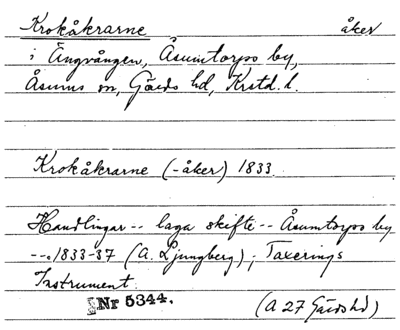 Krokåkrarne åker
i Ängvången, Åsumtorps by,
Åsums sn, Gärds hd, Krstd. l.
Krokåkrarne (-åker) 1833
Handlingar -- laga skifte -- Åsumtorps by
--- 1833-37 (A. Ljungberg); Taxerings
Instrument.
Nr 5344.
(A 27 Gärds hd)